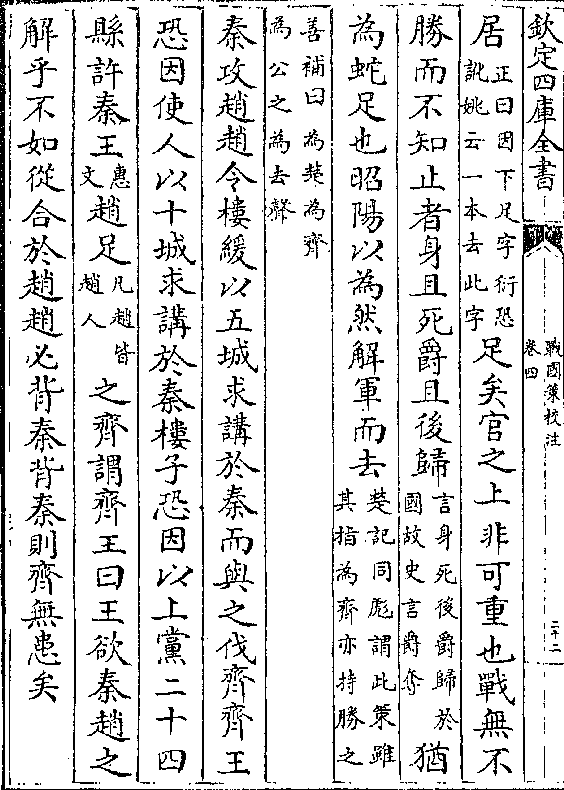 欽定四庫全書
戰國策校注
卷四
二十二
居正曰因下足字衍恐訛姚云一本去此字足矣官之上非可重也戰無不
勝而不知止者身且死爵且後歸言身死後爵歸於國故史言爵奪猶
為蛇足也昭陽以為然解軍而去楚記同彪謂此策雖其指為齊亦持勝之
善補曰為楚為齊為公之為去聲
秦攻趙趙令樓緩以五城求講於秦而與之伐齊齊王
恐因使人以十城求講於秦樓子恐因以上黨二十四
縣許秦王惠文趙足凡趙皆趙人之齊謂齊王曰王欲秦趙之
解乎不如從合於趙趙必背秦背秦則齊無患矣